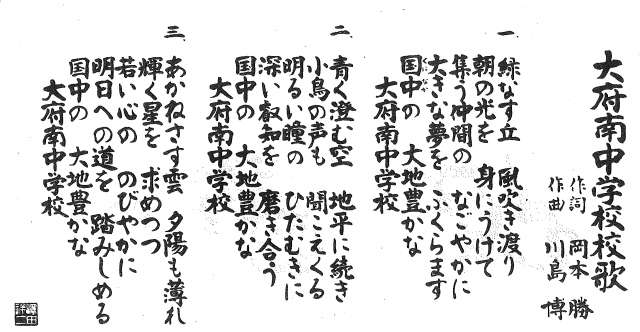 大府南中学校校歌
作詞 岡本 勝
作曲 川島 博
一
緑なす立 風吹き渡り
朝の光を 身にうけて
集う仲間の なごやかに
大きな夢を ふくらます
国中の 大地豊かな
大府南中学校
二
青く澄む空 地平に続き
小鳥の声も 聞こえくる
明るい瞳の ひたむきに
深い叡知を 磨き合う
国中の 大地豊かな
大府南中学校
三
あかねさす雲 夕陽も薄れ
輝く星を 求めつつ
若い心の のびやかに
明日への道を 踏みしめる
国中の 大地豊かな
大府南中学校